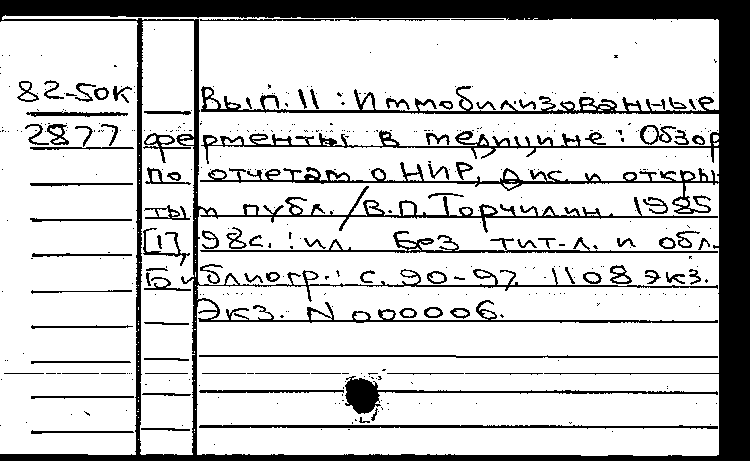 82-50К Вып. 11 : Иммобилизованные
2877 ферменты в медицине: Обзор
по отчетам о НИР, дис. и откры
тым публ. / В.П. Торчилин. 1985
[1], 98с. : ил. Без тит-л. и обл.
Библиогр.: с. 90-97. 1108 экз.
Экз. N 000006.